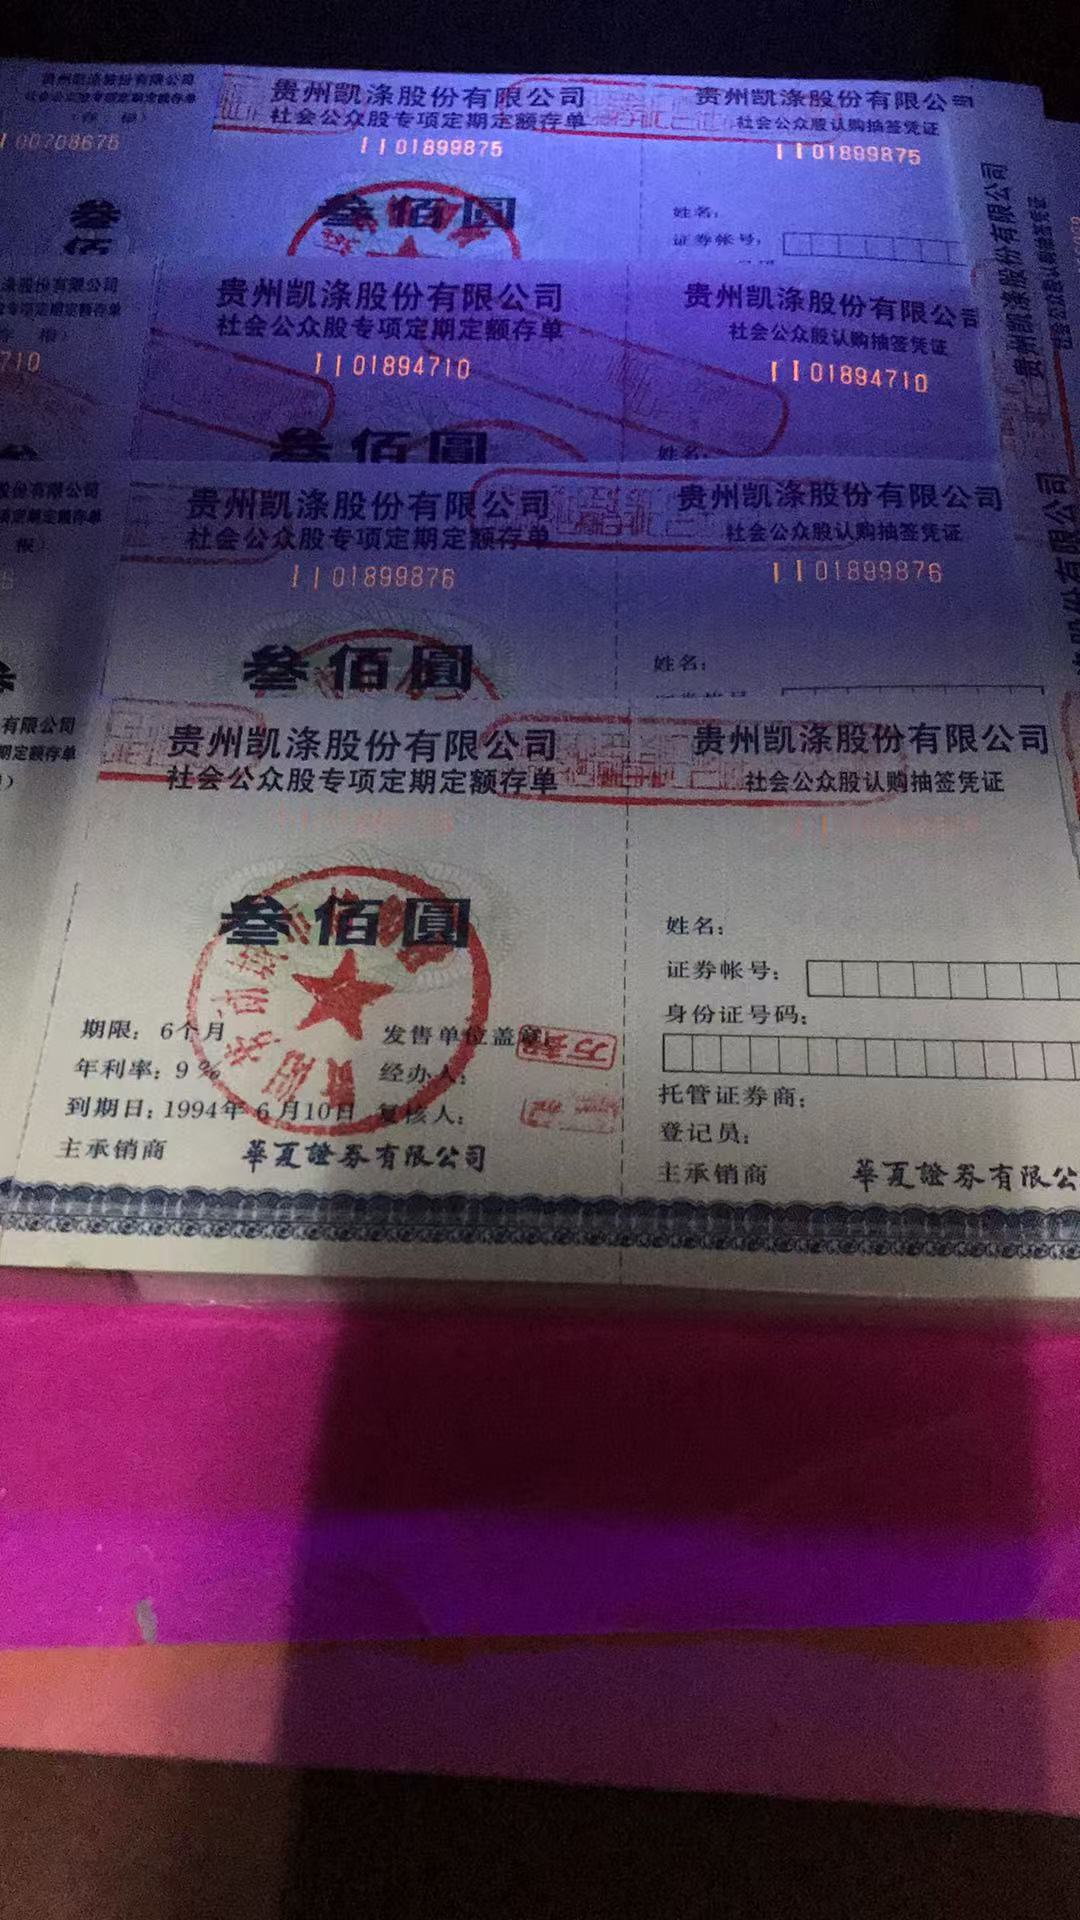 贵州凯涤股份有限公司
社会公众股专项定期定额存单
00708675
叁佰
贵州凯涤股份有限公司
社会公众股专项定期定额存单
11 01899875
叁佰圆
贵州凯涤股份有限公司
社会公众股认购抽签凭证
11 01899875
姓名:
证券帐号:
贵州凯涤股份有限公司
社会公众股认购抽签凭证
涤股份有限公司
710
贵州凯涤股份有限公司
社会公众股专项定期定额存单
11 01894710
叁佰圆
贵州凯涤股份有限公司
社会公众股认购抽签凭证
11 01894710
姓名:
股份有限公司
贵州凯涤股份有限公司
社会公众股专项定期定额存单
11 01899876
叁佰圓
贵州凯涤股份有限公司
社会公众股认购抽签凭证
11 01899876
姓名:
股份有限公司
有限公司
期定额存单
贵州凯涤股份有限公司
社会公众股专项定期定额存单
叁佰圓
期限: 6个月
年利率: 9%
到期日: 1994年6月10日
发售单位盖章:
经办人:
复核人:
主承销商 華夏證券有限公司
贵州凯涤股份有限公司
社会公众股认购抽签凭证
姓名:
证券帐号:
身份证号码:
托管证券商:
登记员:
主承销商 華夏證券有限公